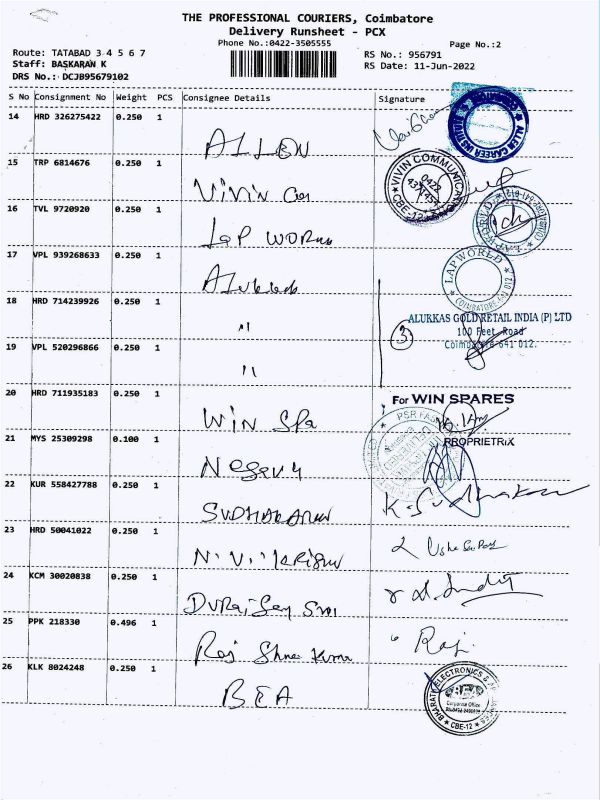 THE PROFESSIONAL COURIERS, Coimbatore
Delivery Runsheet - PCX
Phone No.:0422-3505555
Page No.:2
Route: TATABAD 3 4 5 6 7
Staff: BASKARAN K
DRS No.: DCJB95679102
RS No.: 956791
RS Date: 11-Jun-2022
S No Consignment No Weight PCS Consignee Details Signature
14 HRD 326275422 0.250 1
ALLEN
ALLEN CAREER INSTITUTE
15 TRP 6814676 0.250 1
Vivin Co
VIVIN COMMUNICATION
0422
CBE-12
16 TVL 9720920 0.250 1
LAP WORLD
LAPWORLD
17 VPL 939268633 0.250 1
LAPWORLD
COIMBATORE-641 012
18 HRD 714239926 0.250 1
"
3
ALURKAS GOLD RETAIL INDIA (P) LTD
100 Feet Road
Coimbatore 641 012.
19 VPL 520296866 0.250 1
"
20 HRD 711935183 0.250 1
WIN Spa
For WIN SPARES
PROPRIETRIX
21 MYS 25309298 0.100 1
22 KUR 558427788 0.250 1
SUDHAKARAN
K. Sudhakaran
23 HRD 50041022 0.250 1
24 KCM 30020838 0.250 1
Durai Samy
25 PPK 218330 0.496 1
Raj Shree Kumar
Raj
26 KLK 8024248 0.250 1
BEA
BHARATH ELECTRONICS &
BEA
Corporate Office
CBE-12